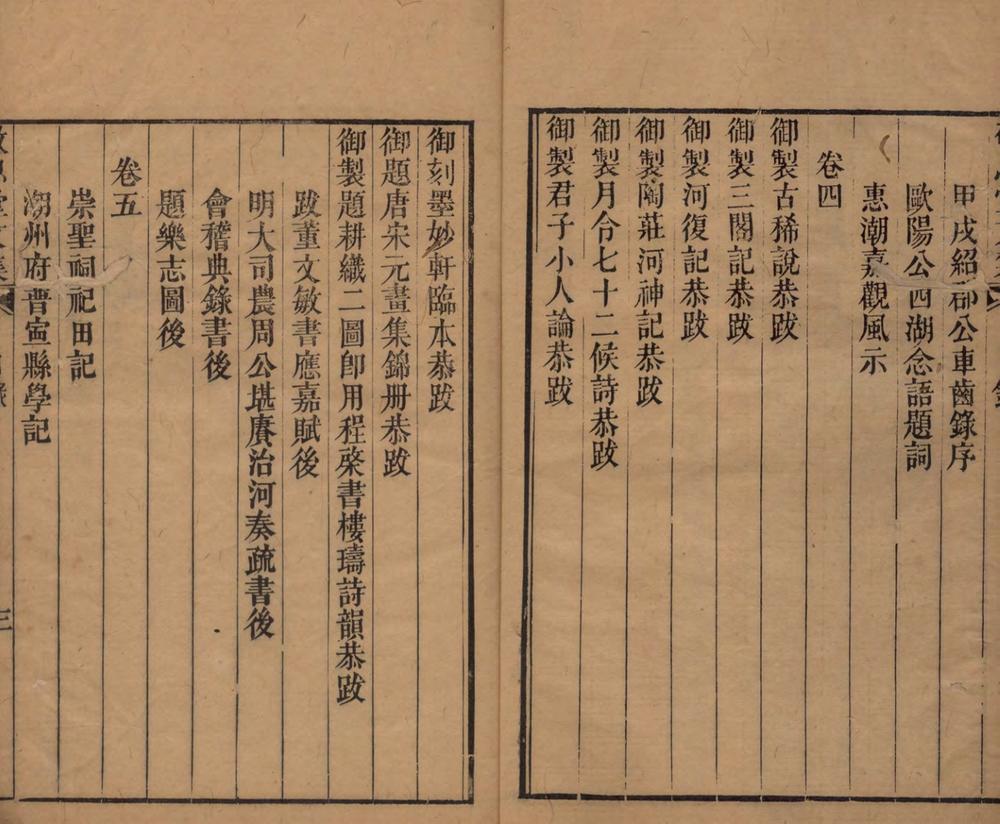 甲戌紹郡公車齒錄序
歐陽公西湖念語題詞
惠潮嘉觀風示
卷四
御製古稀說恭跋
御製三閣記恭跋
御製河復記恭跋
御製陶莊河神記恭跋
御製月令七十二候詩恭跋
御製君子小人論恭跋
御刻墨妙軒臨本恭跋
御題唐宋元畫集錦册恭跋
御製題耕織二圖卽用程棨書樓璹詩韻恭跋
跋董文敏書應嘉賦後
明大司農周公堪賡治河奏疏書後
會稽典錄書後
題樂志圖後
卷五
崇聖祠祀田記
潮州府晋寍縣學記
三